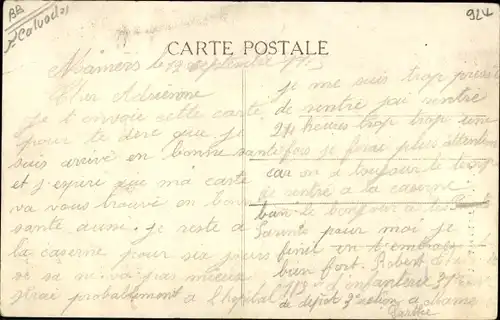 BB
Calvados
924
CARTE POSTALE
Mamers le 12 septembre
Cher Adrienne
Je t envoie cette carte
pour te dire que je
suis arrivé en bonne sante
et j'espere que ma carte
va vous trouvé en bonne
sante aussi. je reste à
la caserne pour six jours
si sa ne va pas mieux
j'irai probablement a l'hopital
je me suis trop pressé
de rentré j'ai rentré
24 heures trop trop une
fois je ferai plus attention
car on a toujour le temps
de rentré a la caserne
bien le bonjour a tes
pour moi je
finit en t'embrassant
bien fort. Robert
d'infanterie
de depot 3e section a Mamers
Sarthe